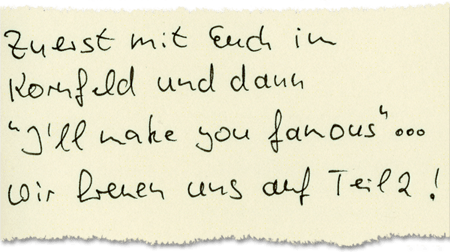 Zuerst mit Euch im
Kornfeld und dann
"I'll make you famous"...
wir freuen uns auf Teil 2!